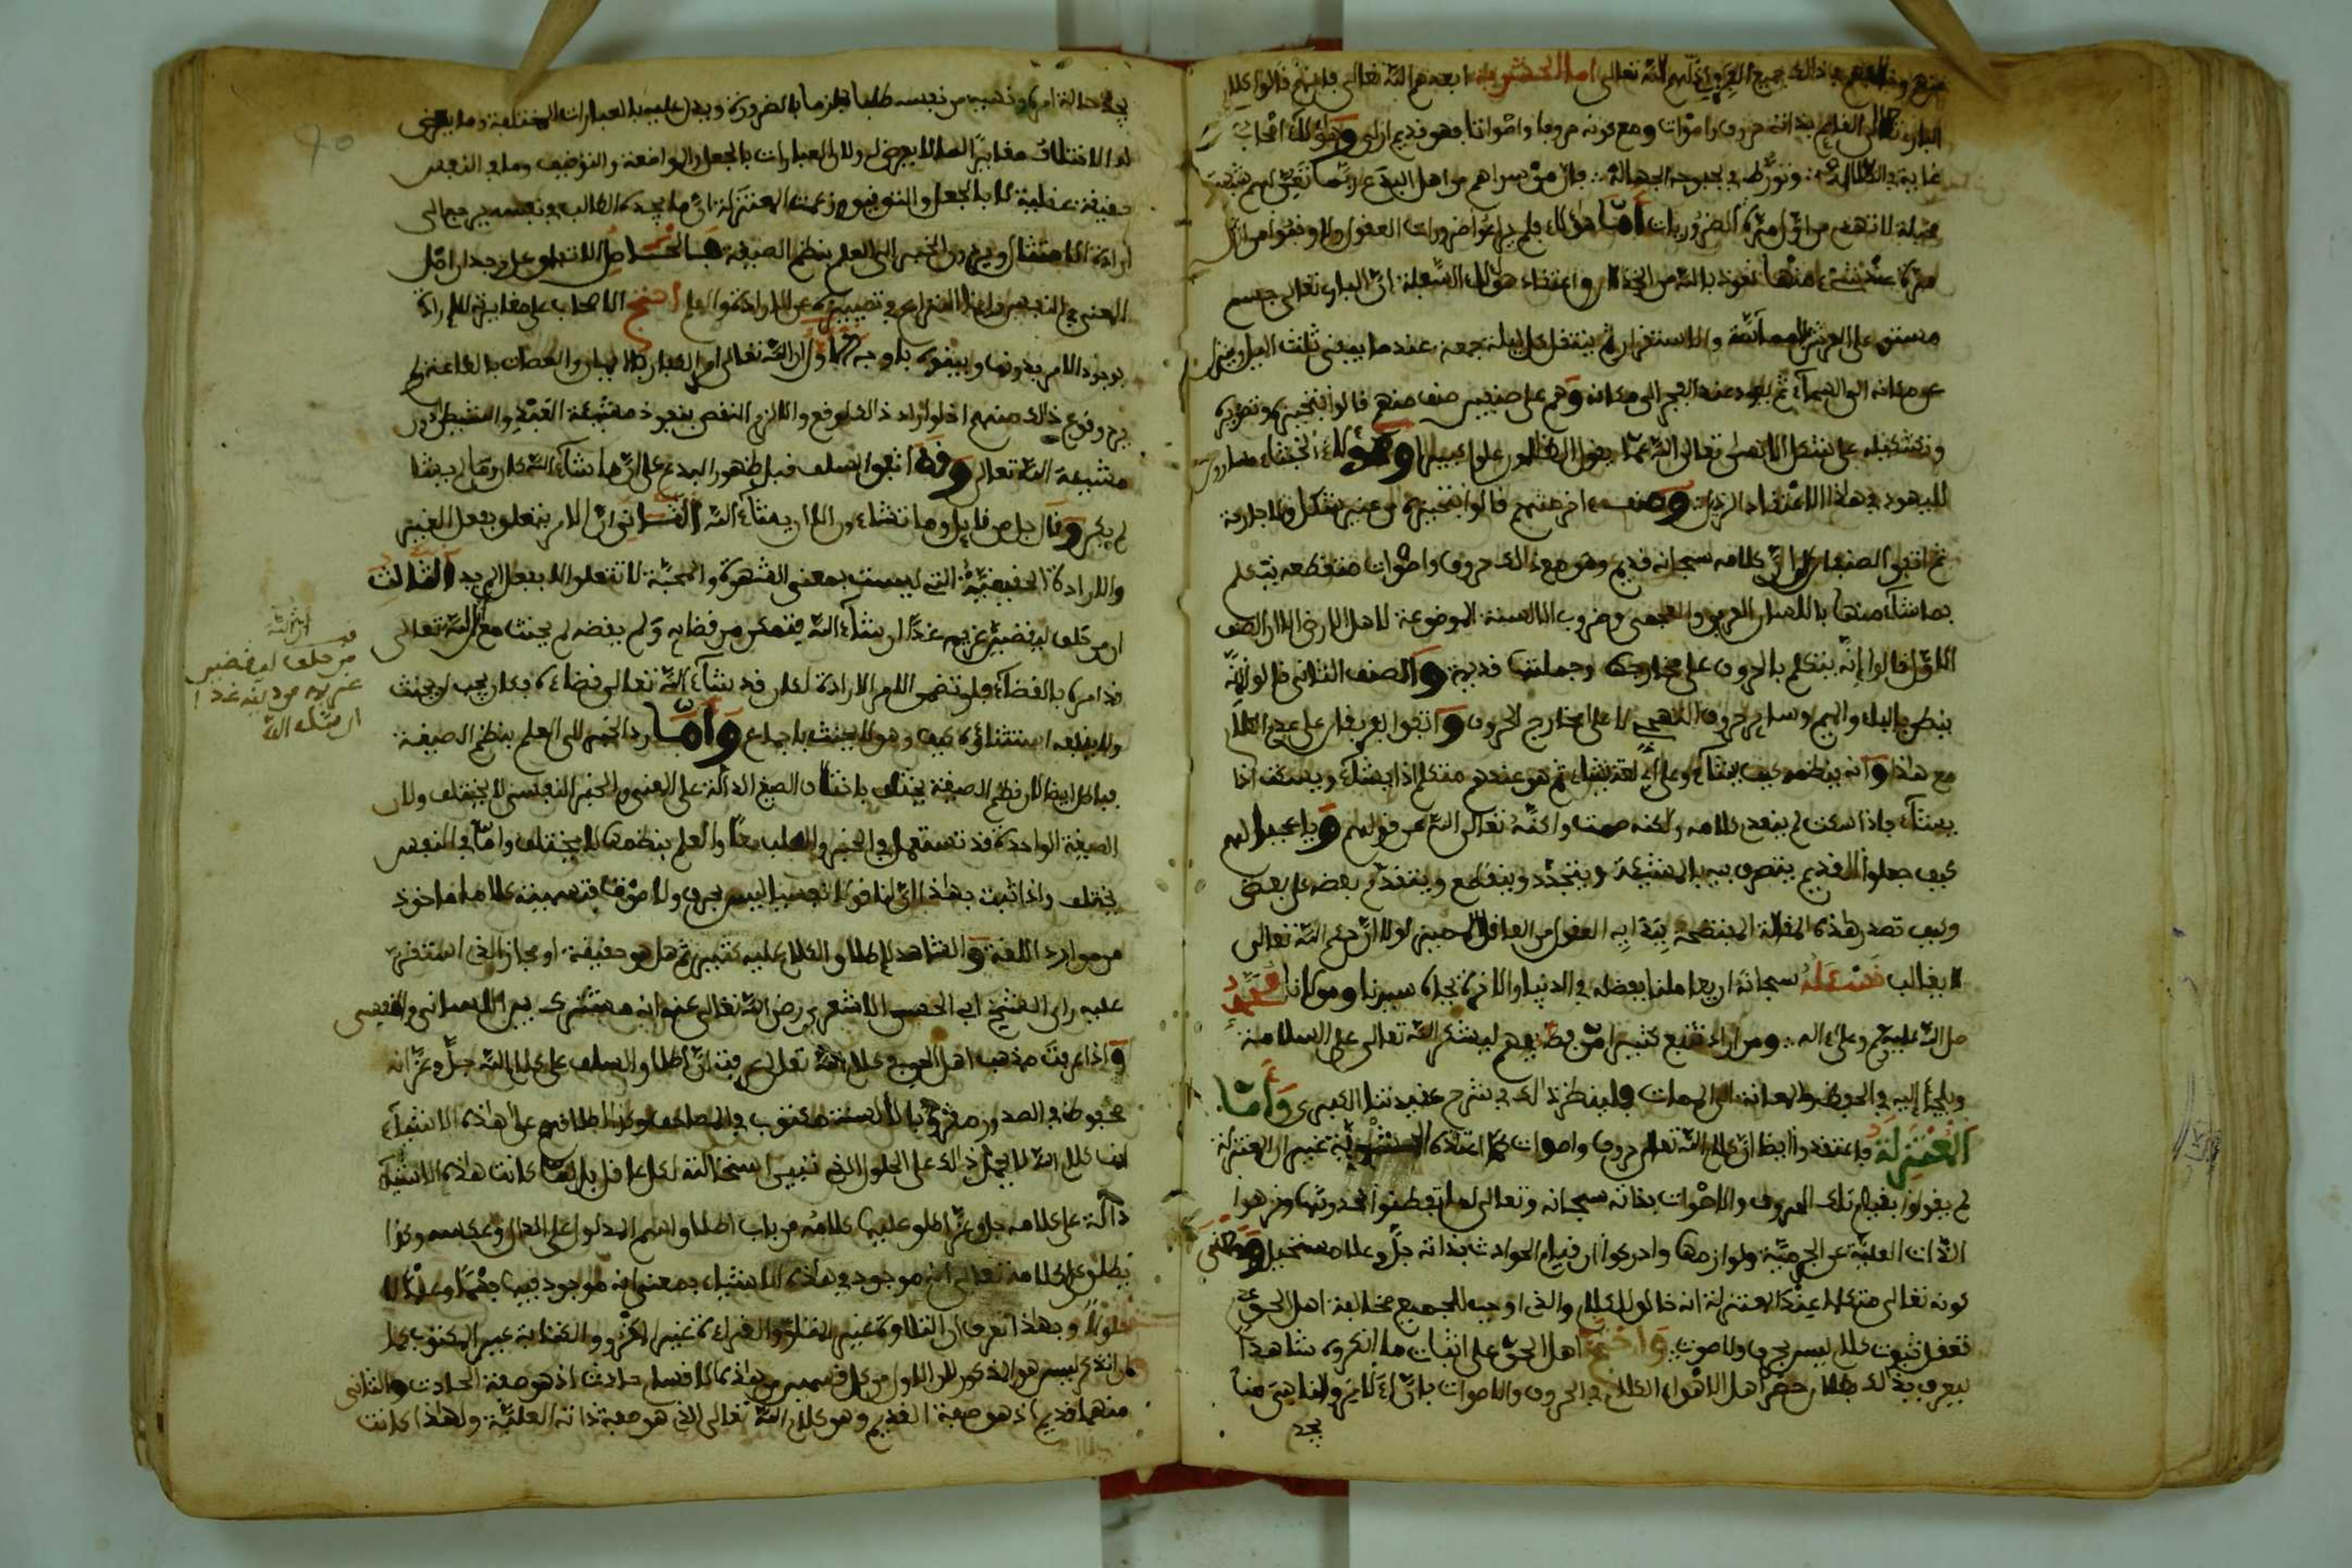 منهم وخالفهم في ذلك جميع الفرق أذلهم الله تعالى أما الحشوية أبعدهم الله تعالى فإنهم قالوا كلام
البارئ تعالى القائم بذاته حروف وأصوات ومع كونه حروفا وأصواتا فهو قديم أزلي وهؤلاء أصحاب
غاية في الضلالة وتورط في بحبوحة الجهالة فإن من سواهم من أهل البدع ربما تقع لهم شبهة
مخيلة لا تنتهض من أول مرة الضروريات أما هؤلاء فلم يراعوا ضرورات العقول ولا وقفوا من أول
مرة عند شيء منها نعوذ بالله من الخذلان واعتقاد هؤلاء السفلة أن البارئ تعالى جسم
مستو على العرش المماسة والاستقرار ثم ينتقل كل ليلة جمعة عندما يبقى ثلث الليل وينزل
عن مكانه إلى السماء ثم يعود عند الفجر إلى مكانه وهم على صنفين صنف منهم قالوا بتحيزه وتصويره
وتشكيله على شكل الإنسان تعالى الله عما يقول الظالمون علوا كبيرا وهؤلاء الخبثاء مساوون
لليهود في هذا الاعتقاد الرذل وصنف آخر منهم قالوا بتحيزه من غير شكل ولا جارحة
ثم اتفق الصنفان على أن كلامه سبحانه قديم وهو مع ذلك حروف وأصوات متقطعة يتكلم
بما شاء منها باللسان العربي والعجمي وضروب الألسنة الموضوعة لأهل الأرض إلا أن الصنف
الأول قالوا إنه يتكلم بالحروف على مخارجها وجملتها قديمة والصنف الثاني قالوا إنه
ينطق بالباء والميم وسائر حروف التهجي لا على مخارج الحروف واتفق الفريقان على قدم الكلام
مع هذا وأنه ينظمه كيف يشاء وعلى أي لغة يشاء ثم هو عندهم متكلم إذا يشاء ويسكت إذا
يشاء فإذا سكت لم ينعدم كلامه ولكنه صمت واكنه تعالى الله عن قولهم ويا عجبا لهم
كيف جعلوا القديم يتصرف فيه بالمشيئة ويتجدد وينقطع ويتقدم بعضه على بعض
وكيف تصدر هذه المقالة المفتضحة ببداية العقول من العاقل المميز لولا أن حكم الله تعالى
لا يغالب فنسأله سبحانه أن يعاملنا بفضله في الدنيا والآخرة بجاه سيدنا ومولانا محمد
صلى الله عليه وسلم وعلى آله ومن أراد تتبع كثير من فضائحهم ليشكر الله تعالى على السلامة
ويلجأ إليه في الحفظ والمعافاة إلى الممات فلينظر ذلك في شرح عقيدتنا الكبرى وأما
المعتزلة فاعتقدوا أيضا أن كلام الله تعالى حروف وأصوات كما اعتقده الحشوية غير أن المعتزلة
لم يقولوا بقيام تلك الحروف والأصوات بذاته سبحانه وتعالى لما تفطنوا لحدوثها ونزهوا
الذات العلية عن الجرمية ولوازمها وأدركوا أن قيام الحوادث بذاته جل وعلا مستحيل ومعنى
كونه تعالى متكلما عند المعتزلة أنه خالق للكلام والذي أوجب للجميع مخالفة أهل الحق عدم
تعقل ثبوت كلام ليس بحرف ولا صوت واحتج أهل الحق على إثبات ما أنكروه شاهدا
ليعرف بذلك بطلان حصر أهل الأهواء الكلام في الحروف والأصوات بأن الآمر والناهي منا
يجد
يجد حالة أمره ونهيه من نفسه طلبا جازما بالضرورة ويدل عليه بالعبارات المختلفة وما يعرض
له الاختلاف مغاير لما لا يعرض له ولأن العبارات بالجعل والمواضعة والتوقيف وما في النفس
حقيقة عقلية لا بالجعل والتوقيف وزعمت المعتزلة أن ما يجده الطالب في نفسه يرجع إلى
إرادة الامتثال ويردون الخبر إلى العلم بنظم الصيغة فالحاصل الاتفاق على وجدان أصل
المعنى في النفس وإنما النزاع في تمييزه عن الإرادة والعلم احتج الأصحاب على مغايرته للإرادة
بوجود الأمر بدونها وبيانه بأوجه أحدها أن الله تعالى أمر الكفار بالإيمان والعصاة بالطاعة ولم
يرد وقوع ذلك منهم إذ لو أراد ذلك لوقع وإلا لزم النقص بنفوذ مشيئة العبد والشيطان دون
مشيئة الله تعالى وقد اتفق السلف قبل ظهور البدع على أن ما شاء الله كان وما لم يشأ
لم يكن وقال جل من قائل وما تشاءون إلا أن يشاء الله الثاني أن الأمر يتعلق بفعل الغير
والإرادة الحقيقية التي ليست بمعنى الشهوة والمحبة لا تتعلق إلا بفعل المريد الثالث
أن من حلف ليقضين غريمه غدا إن شاء الله فتمكن من قضائه ولم يقضه لم يحنث مع أن الله تعالى
قد أمره بالقضاء فلو تضمن الأمر الإرادة لكان قد شاء الله تعالى قضاءه فكان يجب أن يحنث
ولا ينفعه استثناؤه كيف وهو لا يحنث بإجماع وأما رد الخبر إلى العلم بنظم الصيغة
فباطل أيضا لأن نظم الصيغة يختلف باختلاف الصيغ الدالة على المعنى والخبر النفسي لا يختلف ولأن
الصيغة الواحدة قد تستعمل في الخبر والطلب معا والعلم بنظمها لا يختلف وأما في النفس
يختلف وإذا ثبت بهذا أن لنا قولا نفسيا ليس بحرف ولا صوت فتسميته كلاما مأخوذ
من موارد اللغة والشاهد لإطلاق الكلام عليه كثير ثم هل هو حقيقة أو مجاز الذي استقر
عليه رأي الشيخ أبي الحسن الأشعري رضي الله تعالى عنه أنه مشترك بين اللساني والنفسي
وإذا عرفت مذهب أهل الحق في كلام الله تعالى عرفت أن إطلاق السلف على كلام الله جل وعز أنه
محفوظ في الصدور مقروء بالألسنة مكتوب في المصاحف وكذا إطلاقهم على هذه الأشياء
أنها كلام الله لا يحمل ذلك على الحلول الذي تبين استحالته لكل عاقل بل لما كانت هذه الأشياء
دالة على كلامه جل وعز أطلق عليها كلامه من باب إطلاق اسم المدلول على الدال وعكسه وكذا
يطلق على كلامه تعالى أنه موجود في هذه الأشياء بمعنى أنه موجود فيها فهما وعلما لا
حلولا وبهذا تعرف أن التلاوة غير المتلو والقراءة غير المقروء والكتابة غير المكتوب كما
أن الذكر ليس هو المذكور لأن الأول من كل قسمين من هذه الأقسام حادث إذ هو صفة الحادث والثاني
منهما قديم إذ هو صفة القديم وهو كلام الله تعالى الذي هو صفة ذاته العلية ولهذا كانت
من حلف ليقضين
غريمه غدا
إن شاء الله